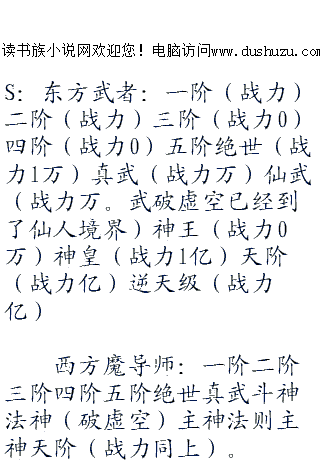 读书族小说网欢迎您！电脑访问www.dushuzu.com
S：东方武者：一阶（战力）
二阶（战力）三阶（战力0）
四阶（战力0）五阶绝世（战
力1万）真武（战力万）仙武
（战力万。武破虚空已经到
了仙人境界）神王（战力0
万）神皇（战力1亿）天阶
（战力亿）逆天级（战力
亿）
西方魔导师：一阶二阶
三阶四阶五阶绝世真武斗神
法神（破虚空）主神法则主
神天阶（战力同上）。